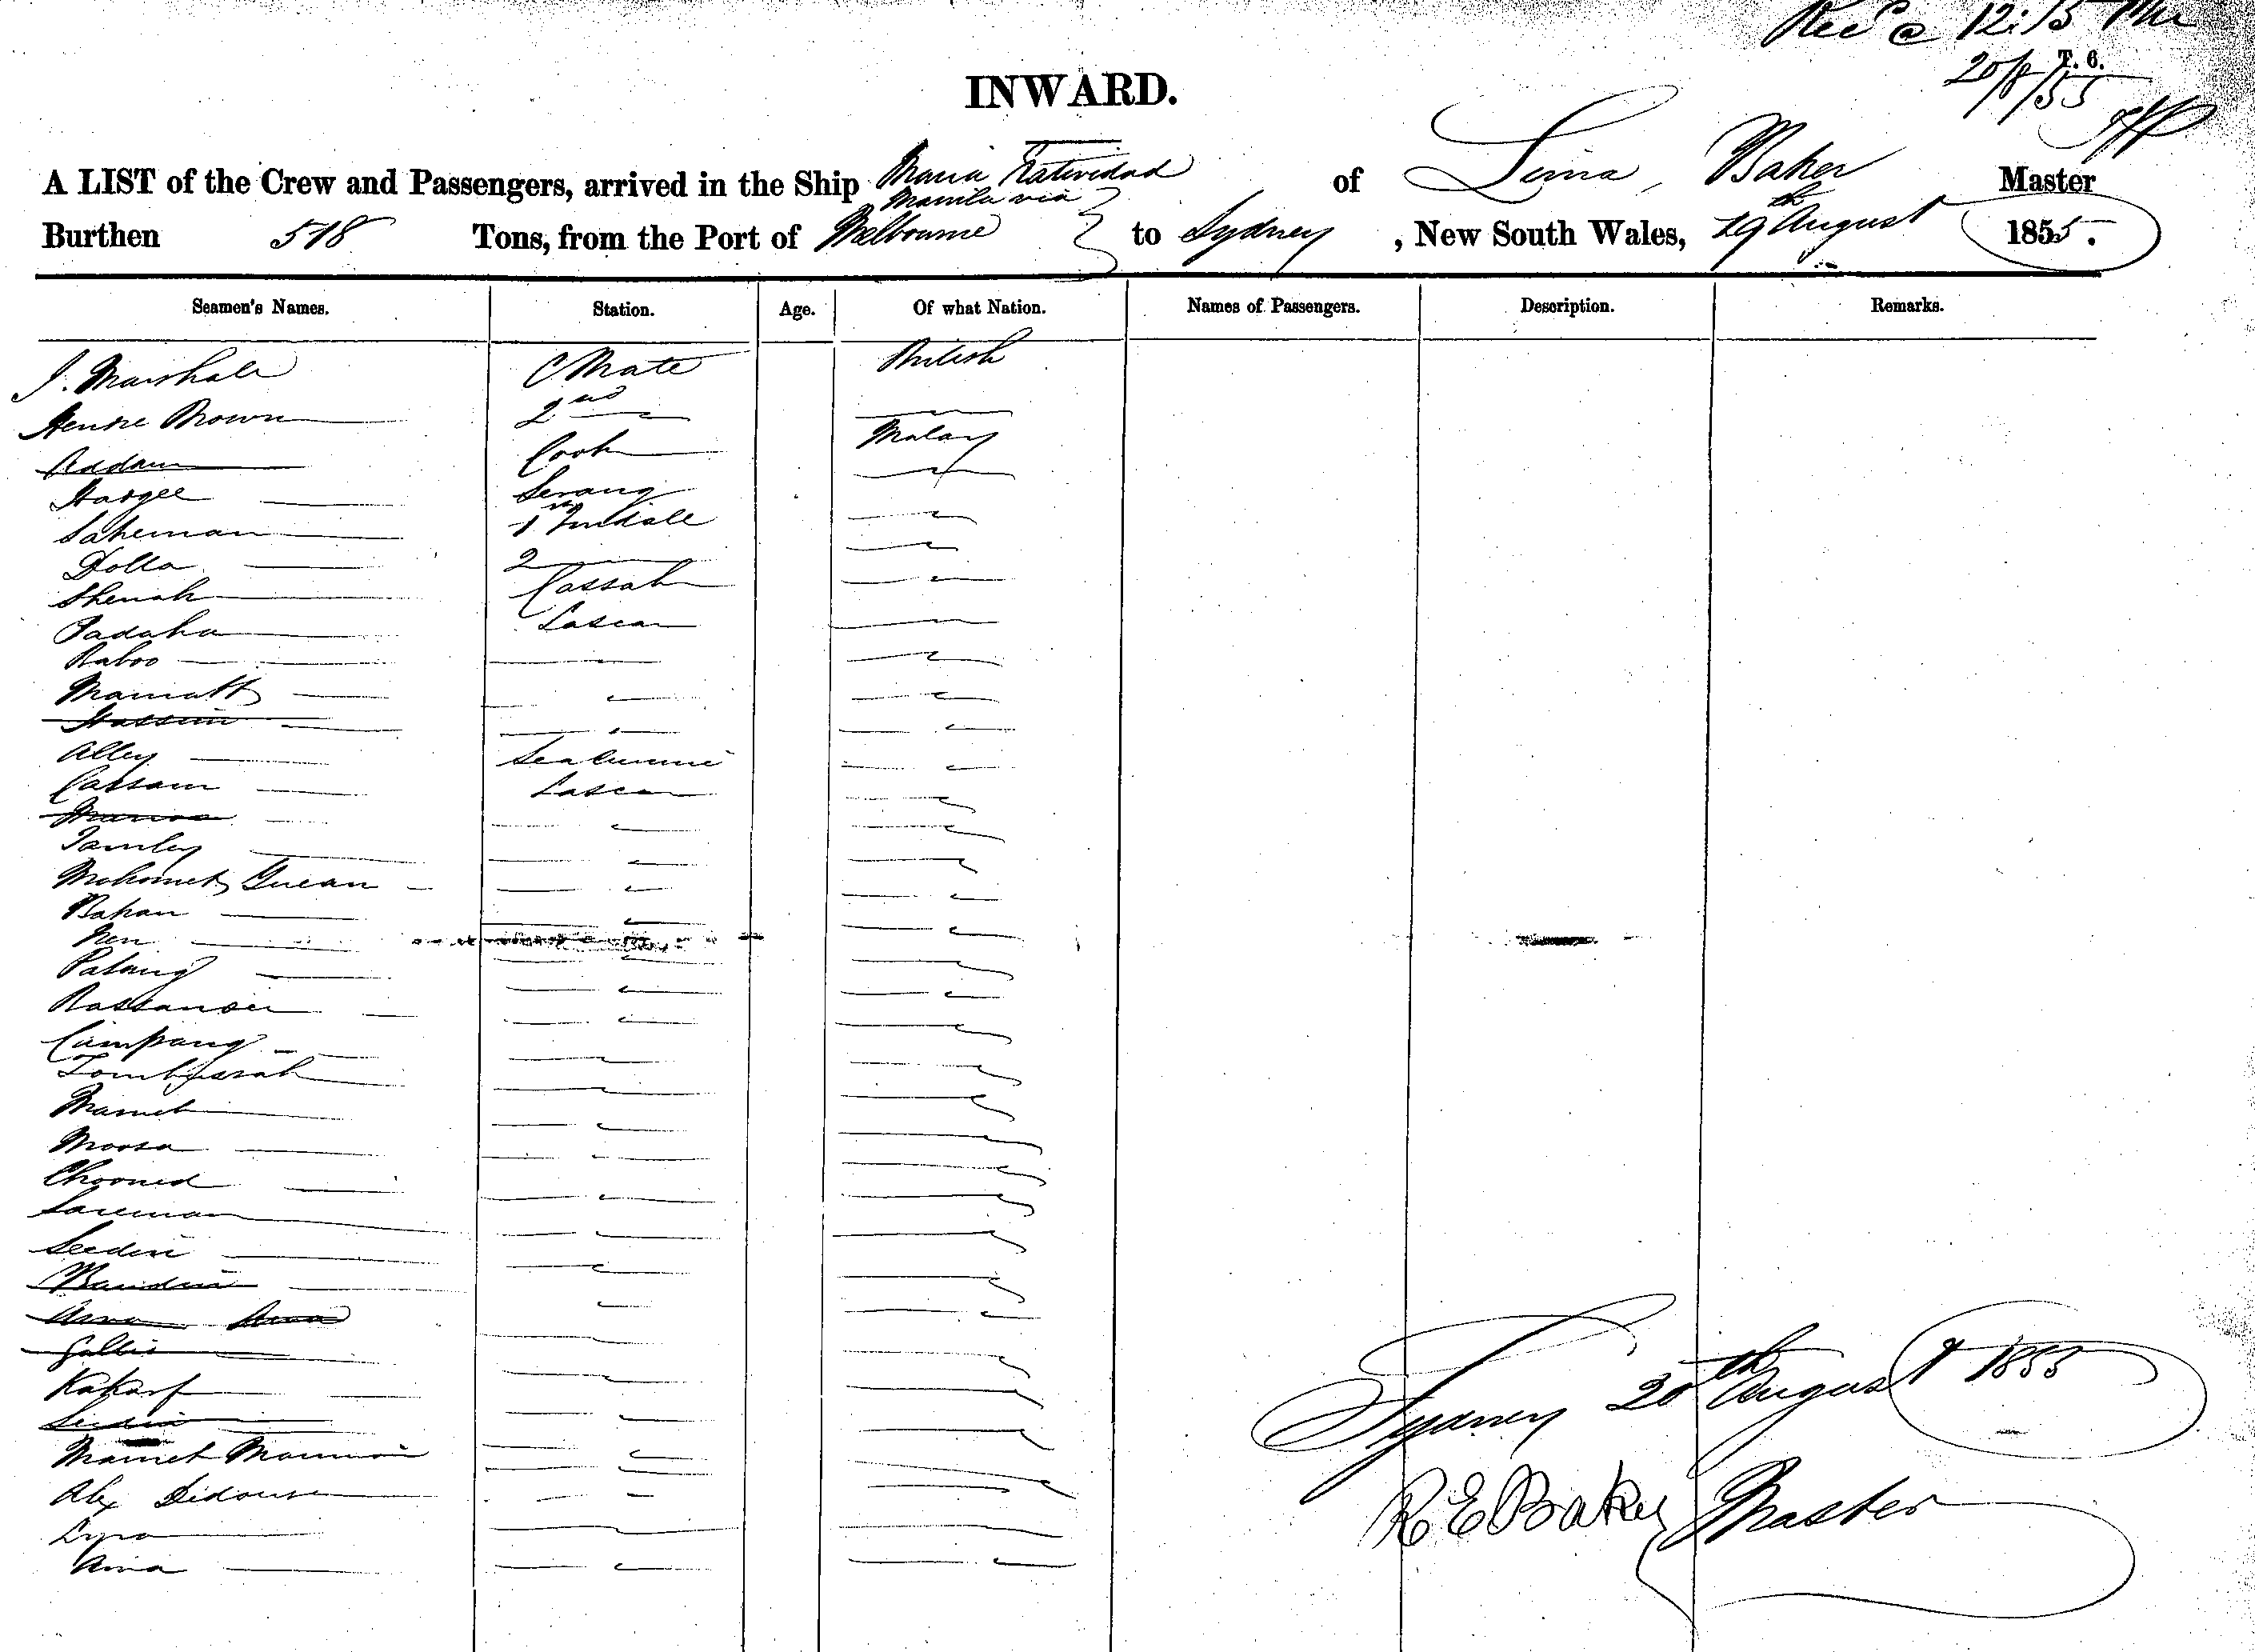 Recd @ 12:15 PM
T. 6.
20/8/55
INWARD.
A LIST of the Crew and Passengers, arrived in the Ship Maria Natividad of Lima, Baker Master
Burthen 518 Tons, from the Port of Manila via Melbourne to Sydney, New South Wales, 19th August 1855.
Seamen's Names. Station. Age. Of what Nation. Names of Passengers. Description. Remarks.
J. Marshall C Mate British
Brown 2nd
Addam Cook Malay
Hargee Serang
Saheman 1st Tindale
Dolla 2
Shenah Cassab
Padaha Lascar
Raboo
Mamatt
Hassim
Alley
Cassam Lascar
Tamley
Mahomet
Bahan
Nen
Patang
Campang
Mamet
Moosa
Sareman
Seedin
Gallie
Mamet
Alex
Ama
Sydney 20th August 1855
R E Baker Master